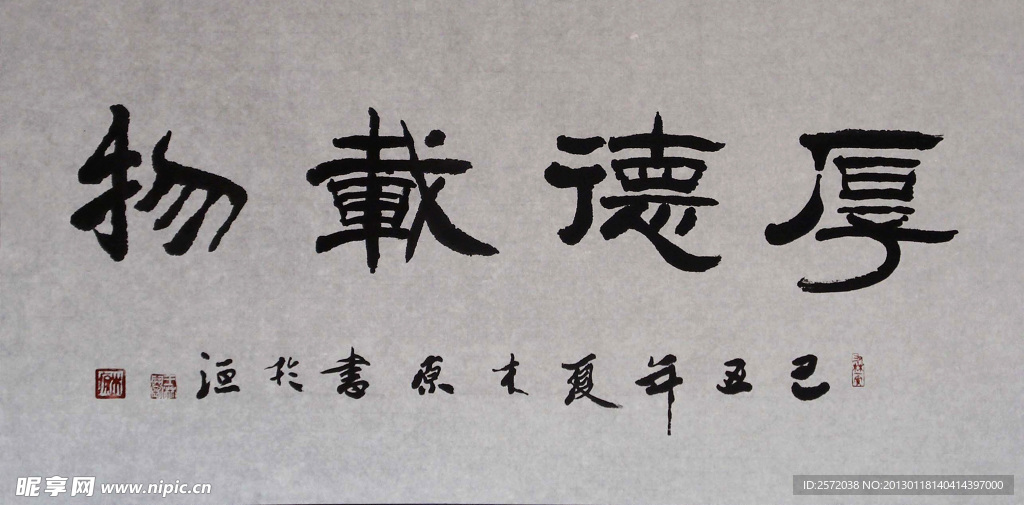 厚德載物
己丑年夏木原書於洹
昵享网 www.nipic.cn
ID:2572038 NO:20130118140414397000